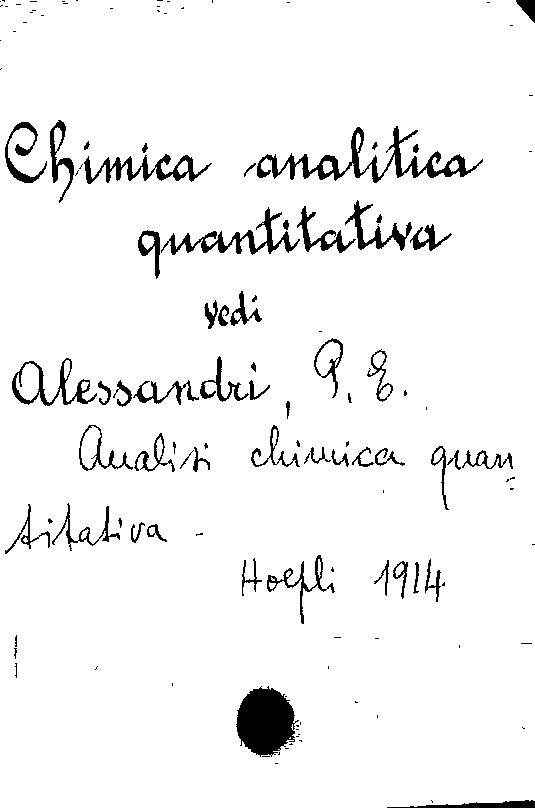 Chimica analitica
quantitativa
vedi
Alessandri, P. E.
Analisi chimica quan=
titativa -
Hoepli 1914